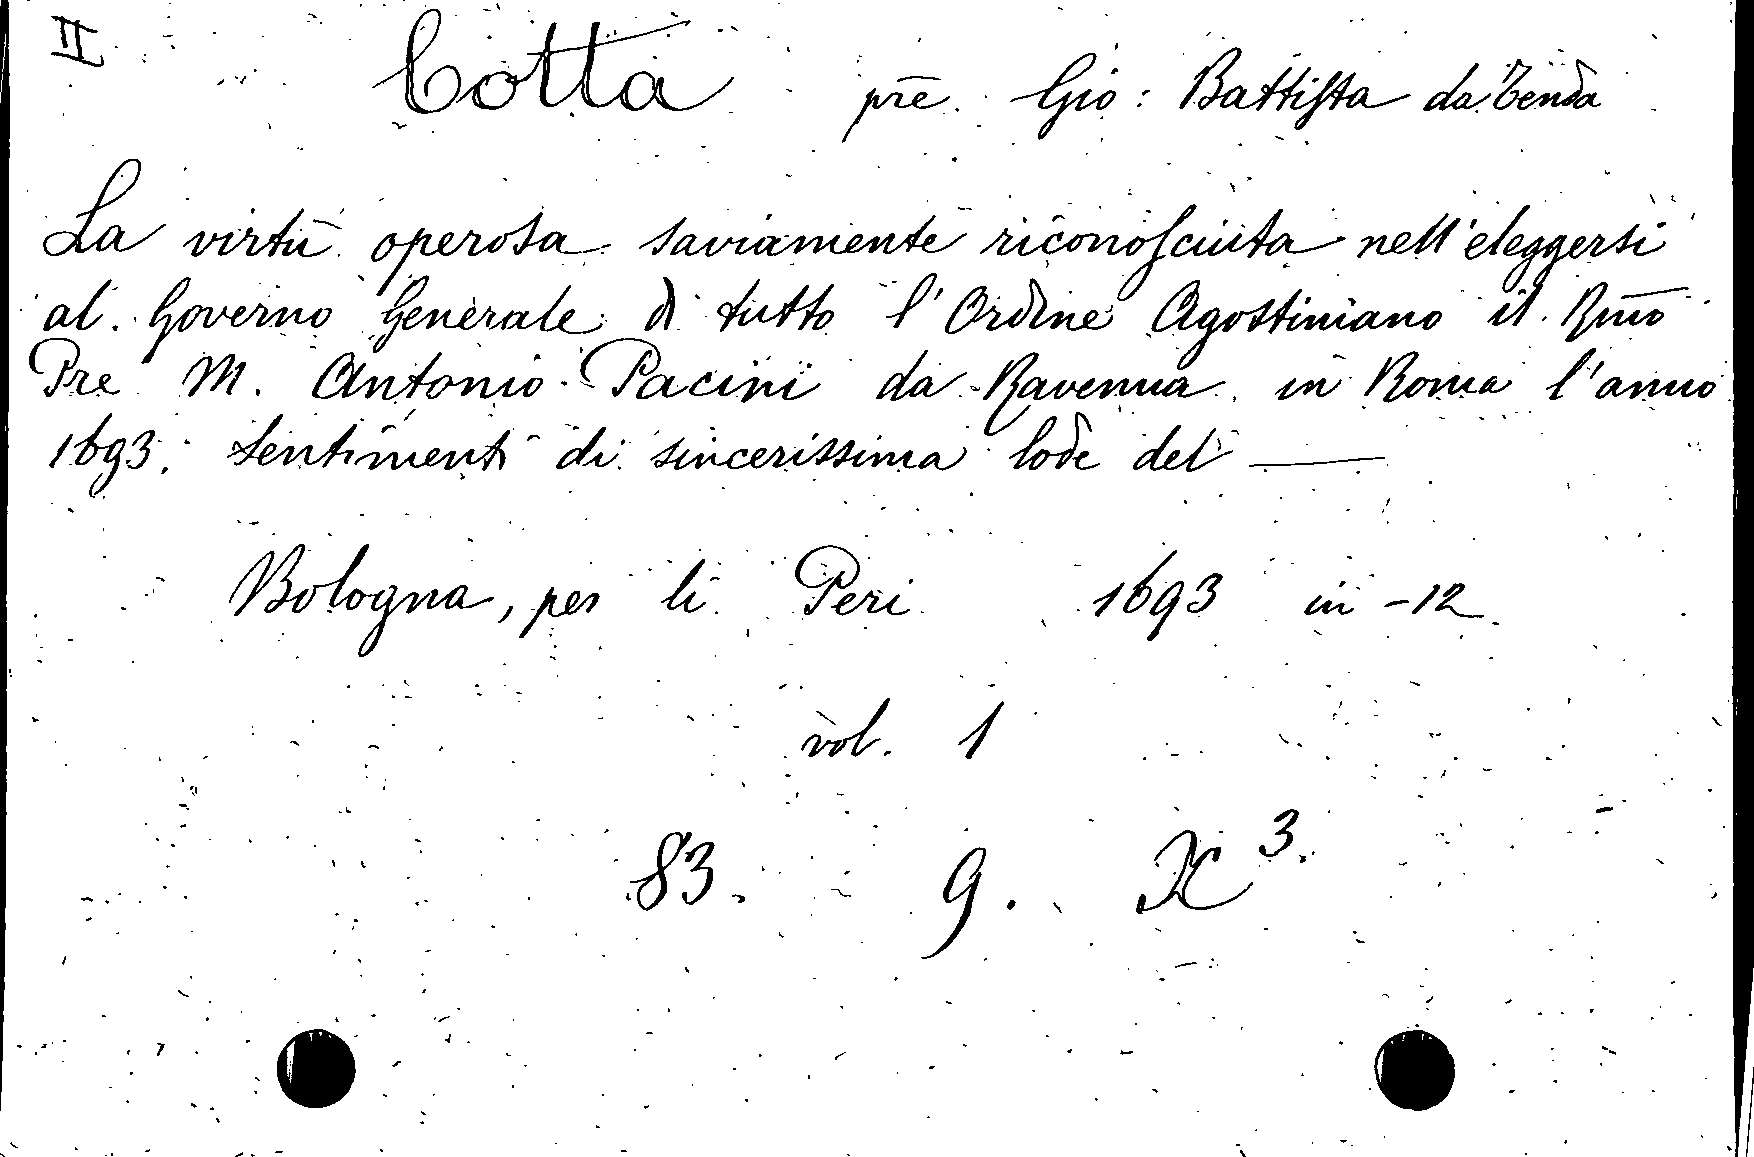 II
Cotta pre. Gio: Battista da Tenda
La virtù operosa saviamente riconosciuta nell'eleggersi
al Governo Generale di tutto l'Ordine Agostiniano il Rmo
Pre M. Antonio Pacini da Ravenna in Roma l'anno
1693. Sentimenti di sincerissima lode del —
Bologna, per li Peri 1693 in -12
vol. 1
83. 9. X 3.